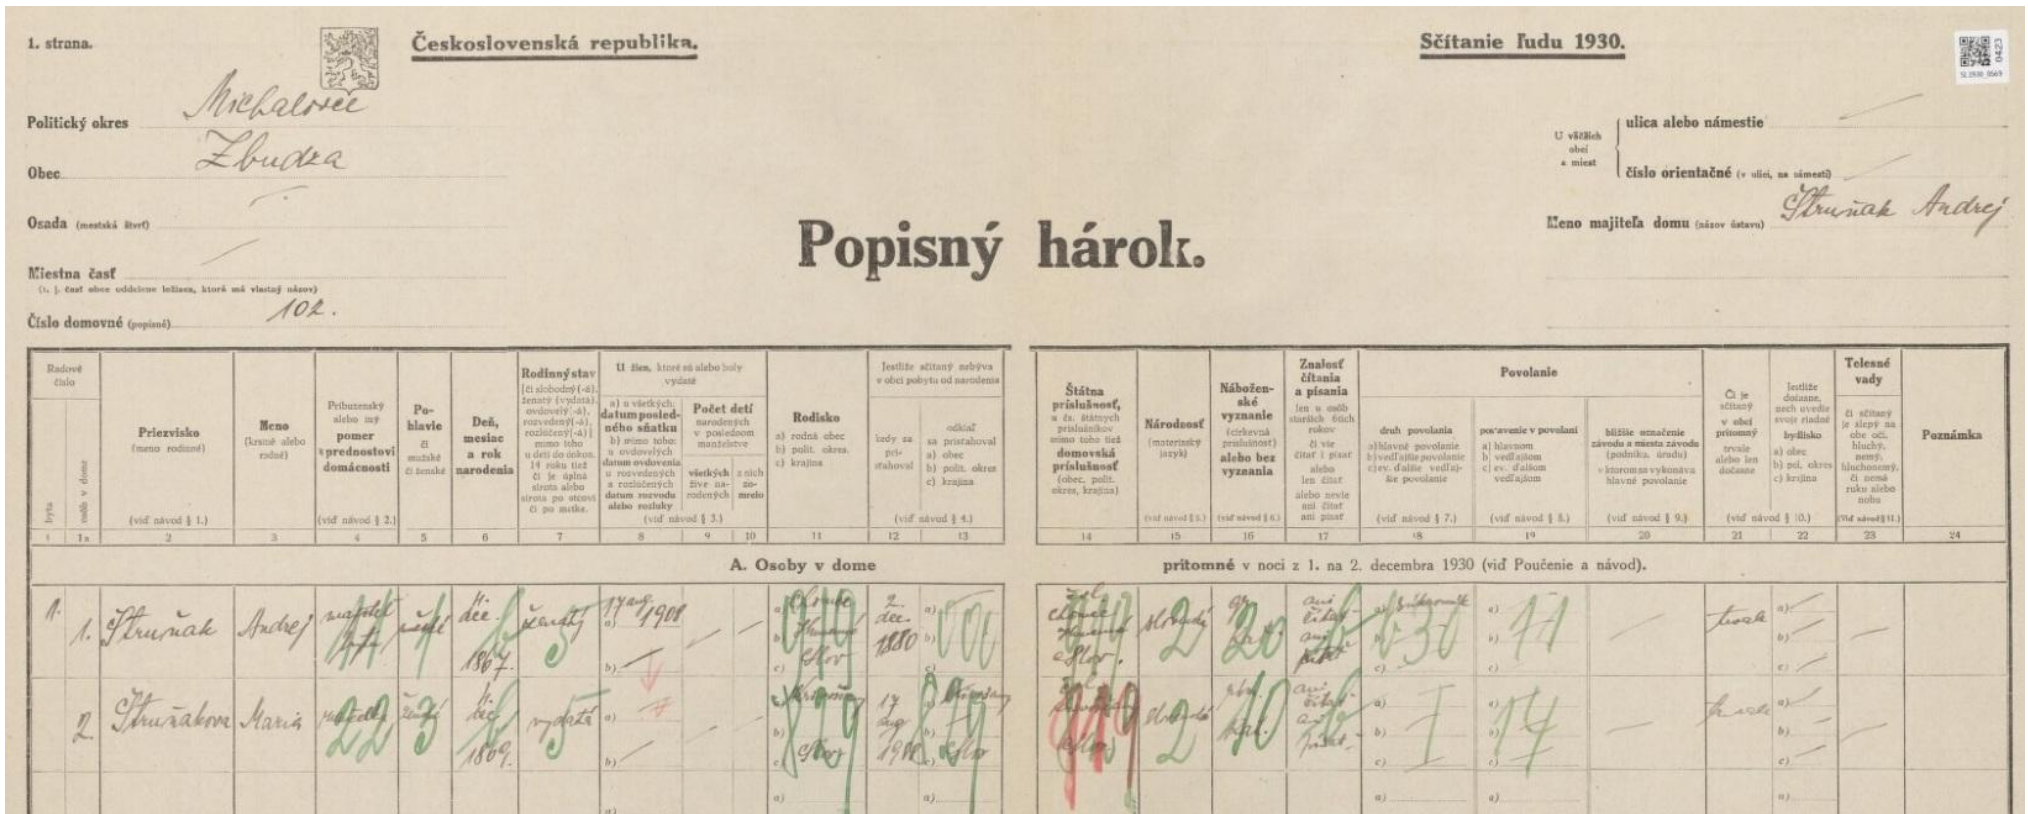 1. strana.
Československá republika.
Sčítanie ľudu 1930.
0423
SL1930_0569
Politický okres Michalovce
Obec Zbudza
Osada (mestská štvrť)
Miestna časť
(t. j. časť obce oddelene ležiaca, ktorá má vlastný názov)
Číslo domovné (popisné) 102.
Popisný hárok.
U väčších
obcí
a miest
ulica alebo námestie
číslo orientačné (v ulici, na námestí)
Meno majiteľa domu (názov ústavu) Štruňak Andrej
Radové
číslo
bytu
osôb v dome
Priezvisko
(meno rodinné)
(viď návod § 1.)
Meno
(krstné alebo
rodné)
Príbuzenský
alebo iný
pomer
k prednostovi
domácnosti
(viď návod § 2.)
Po-
hlavie
či
mužské
či ženské
Deň,
mesiac
a rok
narodenia
Rodinný stav
[či slobodný(-á),
ženatý (vydatá),
ovdovelý(-á),
rozvedený(-á),
rozlúčený(-á)]
mimo toho
u detí do dokon.
14 roku tiež
či je úplná
sirota alebo
sirota po otcovi
či po matke.
U žien, ktoré sú alebo boly
vydaté
a) u všetkých:
datum posled-
ného sňatku
b) mimo toho:
u ovdovelých
datum ovdovenia
u rozvedených
a rozlúčených
datum rozvodu
alebo rozluky
Počet detí
narodených
v poslednom
manželstve
všetkých
žive na-
rodených
z nich
zo-
mrelo
(viď návod § 3.)
Rodisko
a) rodná obec
b) polit. okres.
c) krajina
Jestliže sčítaný nebýva
v obci pobytu od narodenia
kedy sa
pri-
sťahoval
odkiaľ
sa pristahoval
a) obec
b) polit. okres
c) krajina
(viď návod § 4.)
Štátna
príslušnosť,
u čs. štátnych
príslušníkov
mimo toho tiež
domovská
príslušnosť
(obec, polit.
okres, krajina)
Národnosť
(materinský
jazyk)
(viď návod § 5.)
Nábožen-
ské
vyznanie
(cirkevná
príslušnosť)
alebo bez
vyznania
(viď návod § 6.)
Znalosť
čítania
a písania
len u osôb
starších 6tich
rokov
či vie
čítať i písať
alebo
len čítať
alebo nevie
ani čítať
ani písať
Povolanie
druh povolania
a) hlavné povolanie
b) vedľajšie povolanie
c) ev. ďalšie vedľaj-
šie povolanie
(viď návod § 7.)
postavenie v povolaní
a) hlavnom
b) vedľajšom
c) ev. ďalšom
vedľajšom
(viď návod § 8.)
bližšie označenie
závodu a miesta závodu
(podniku, úradu)
v ktorom sa vykonáva
hlavné povolanie
(viď návod § 9.)
Či je
sčítaný
v obci
prítomný
trvale
alebo len
dočasne
Jestliže
dočasne,
nech uvedie
svoje riadne
bydlisko
a) obec
b) pol. okres
c) krajina
(viď návod § 10.)
Telesné
vady
či sčítaný
je slepý na
obe oči,
hluchý,
nemý,
hluchonemý,
či nemá
ruku alebo
nohu
(Viď návod § 11.)
Poznámka
1 1a 2 3 4 5 6 7 8 9 10 11 12 13 14 15 16 17 18 19 20 21 22 23 24
A. Osoby v dome prítomné v noci z 1. na 2. decembra 1930 (viď Poučenie a návod).
1. 1. Štruňak Andrej dec. 1867. ženatý 17 aug. 1908 Slov 2. dec. 1880 Slov. 2 20 ani čítať ani 11
2. Štruňakova Maria 22 3 dec 1869. vydatá 5 Slov 17 aug 1908 819 Slov 919 Slov 2 10 ani čítať 14